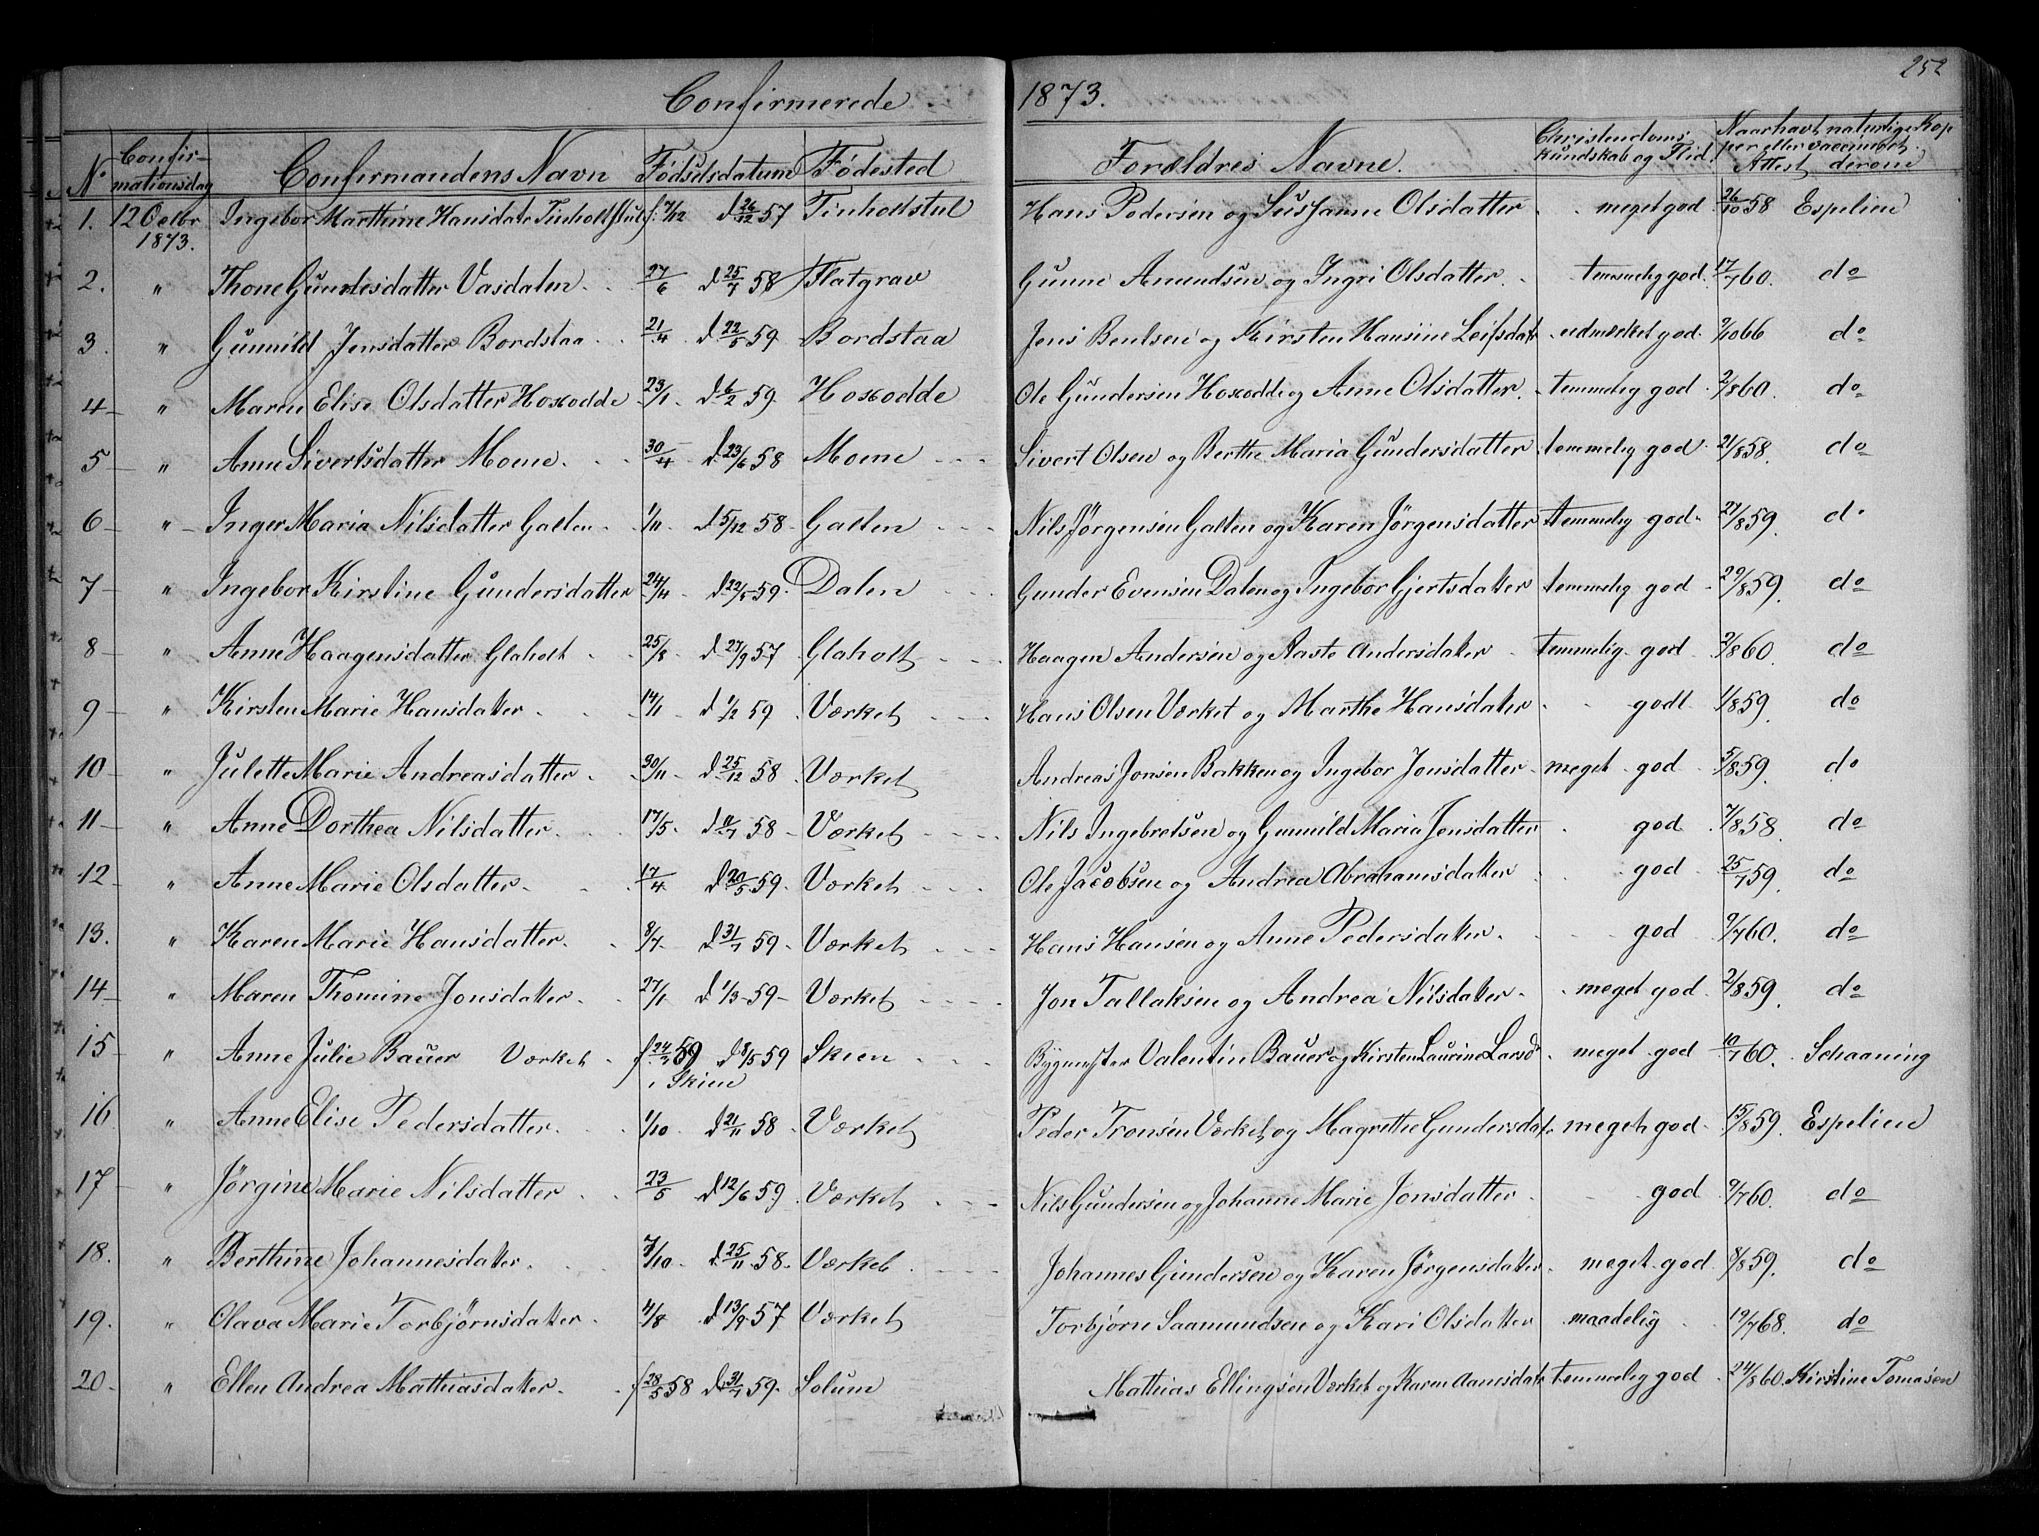 252
Confirmerede 1873.
No Confirmationsdag Confirmandens Navn Fødselsdatum Fødested Forældres Navne. Christendomskundskab og Flid Naar havt naturlige Kopper eller vaccineret. Attest derom
1. 12 Octbr 1873. Ingebor Marthine Hansdatr Tinholtstul f. 7/12 d 26/12 57 Tinholtstul Hans Pedersen og Susanne Olsdatter meget god 26/10 58 Espelien
2. " Thone Gunnesdatter Vasdalen 27/6 d 25/7 58 Flatgrav Gunne Amundsen og Ingri Olsdatter. temmelig god 17/7 60. do
3. " Gunnild Jensdatter Bordstaa 21/4 d 22/5 59 Bordstaa Jens Bentsen og Kirsten Hansine Leifsdatr udmærket god 9/10 66 do
4 " Maren Elise Olsdatter Hoxodde 23/1 d 6/2 59 Hoxodde Ole Gundersen Hoxodde og Anne Olsdatter. temmelig god 2/8 60. do
5 " Anne Sivertsdatter Moene. 30/4 d. 23/6 58 Moene Sivert Olsen og Berthe Maria Gundersdatter temmelig god 21/8 58. do
6 " Inger Maria Nilsdatter Galten 1/11 d 5/12 58 Galten Nils Jørgensen Galten og Karen Jørgensdatter temmelig god 27/8 59. do
7 " Ingebor Kirstine Gundersdatter 24/4 d. 22/5 59. Dalen Gunder Evensen Dalen og Ingebor Gjertsdatter temmelig god 29/8 59. do
8 " Anne Haagensdatter Glaholt 25/8 d 27/9 57 Glaholt Haagen Andersen og Aaste Andersdatter temmelig god 2/8 60. do
9 " Kirsten Marie Hansdatter 14/1 d 1/2 59 Værket Hans Olsen Værket og Marthe Hansdatter godt 1/8 59. do
10 " Julette Marie Andreasdatter 30/11 d 25/12 58 Værket Andreas Jonsen Bakken og Ingebor Jonsdatter meget god 5/8 59. do
11 " Anne Dorthea Nilsdatter. 17/5. d 11/7 58 Værket Nils Ingebretsen og Gunnild Maria Jensdatter god 7/8 58. do
12 " Anne Marie Olsdatter 17/4 d 20/5 59. Værket Ole Jacobsen og Andrea Abrahamsdatter god 25/7 59. do
13. " Karen Marie Hansdatter. 8/7 d 31/7 59 Værket Hans Hansen og Anne Pedersdatter. god 9/7 60. do
14 " Maren Thomine Jonsdatter 27/1 d 1/3 59 Værket Jon Tallaksen og Andrea Nilsdatter meget god 2/8 59. do
15 " Anne Julie Bauer Værket f 24/2 59 i Skien d 8/5 59 Skien Bygmester Valentin Bauer og Kirsten Laurine Larsd meget god 10/7 60. Schaaning
16 " Anne Elise Pedersdatter. 1/10 d 21/11 58 Værket Peder Tronsen Værket og Magrethe Gundersdatr meget god 15/8 59. Espelien
17 " Jørgine Marie Nilsdatter 23/5 d 12/6 59 Værket Nils Gundersen og Johanne Marie Jonsdatter god 9/7 60. do
18. " Berthine Johannesdatter. 7/10 d 25/11 58. Værket Johannes Gundersen og Karen Jørgensdatter meget god 8/8 59. do
19. " Olava Marie Torbjørnsdatter 4/8 d 13/9 57 Værket Torbjørn Saamundsen og Kari Olsdatter maadelig 19/7 68. do
20 " Ellen Andrea Mathiasdatter. f 28/5 58 d 31/7 59. Solum Mathias Ellingsen Værket og Karen Aanesdatr temmelig god 24/8 60. Kirstine Tomasen